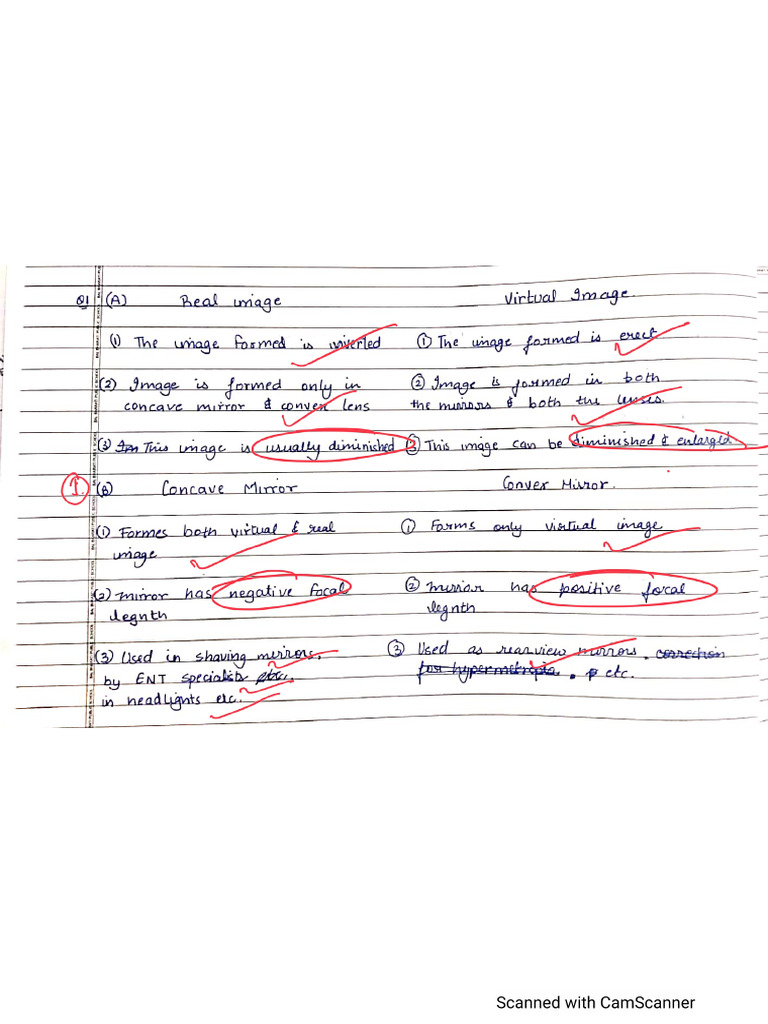 Q1 (A) Real image Virtual Image.
(1) The image formed is inverted ① The image formed is erect
(2) Image is formed only in ② Image is formed in both
concave mirror & convex lens the mirrors & both the lenses.
(3) This image is usually diminished ③ This image can be diminished & enlarged.
1 (B) Concave Mirror Convex Mirror.
(1) Formes both virtual & real ① Forms only virtual image
image
(2) Mirror has negative focal ② Mirror has positive focal
legnth legnth
(3) Used in shaving mirrors, ③ Used as rearview mirrors. correction
by ENT specialist etc. for hypermetropia. etc.
in headlights etc.
Scanned with CamScanner